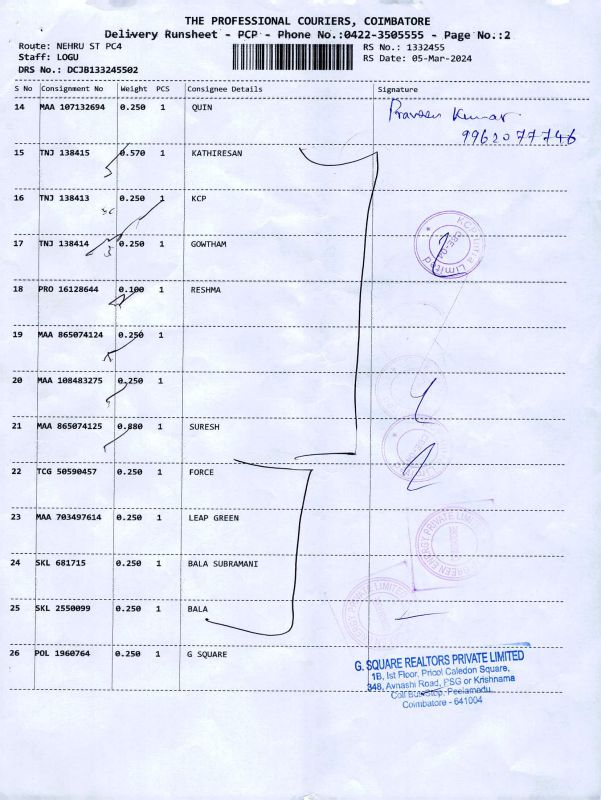 THE PROFESSIONAL COURIERS, COIMBATORE
Delivery Runsheet - PCP - Phone No.:0422-3505555 - Page No.:2
Route: NEHRU ST PC4
RS No.: 1332455
Staff: LOGU
RS Date: 05-Mar-2024
DRS No.: DCJB133245502
S No Consignment No Weight PCS Consignee Details Signature
14 MAA 107132694 0.250 1 QUIN Praveen Kumar
9962077746
15 TNJ 138415 0.570 1 KATHIRESAN
16 TNJ 138413 0.250 1 KCP
17 TNJ 138414 0.250 1 GOWTHAM
18 PRO 16128644 0.100 1 RESHMA
19 MAA 865074124 0.250 1
20 MAA 108483275 0.250 1
21 MAA 865074125 0.880 1 SURESH
22 TCG 50590457 0.250 1 FORCE
23 MAA 703497614 0.250 1 LEAP GREEN
GREEN ENERGY PRIVATE LIMITED
24 SKL 681715 0.250 1 BALA SUBRAMANI
PRIVATE LIMITED
25 SKL 2550099 0.250 1 BALA
26 POL 1960764 0.250 1 G SQUARE
G. SQUARE REALTORS PRIVATE LIMITED
1B, Ist Floor, Pricol Caledon Square,
348, Avnashi Road, PSG or Krishnama
Coll Bus Stop, Peelamedu,
Coimbatore - 641004